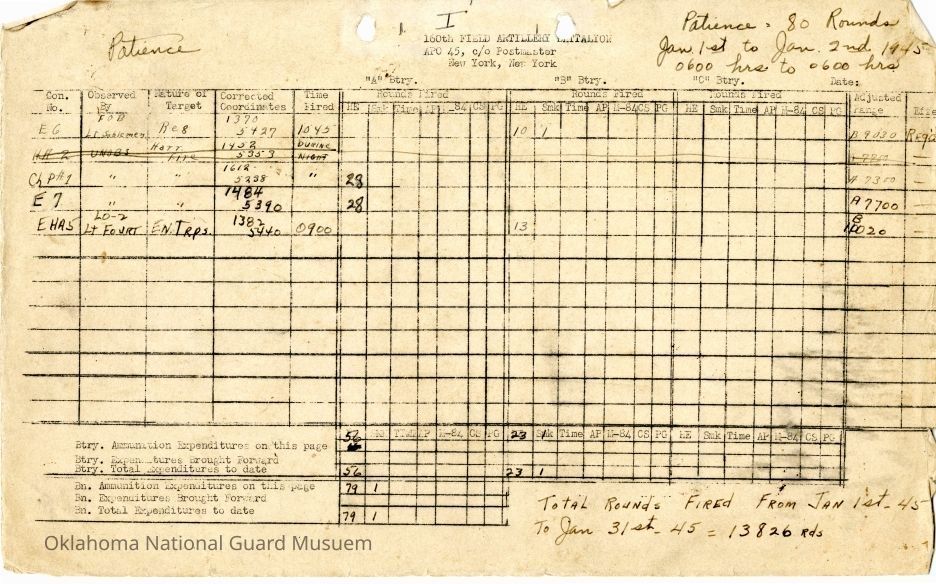 I
Patience
160th FIELD ARTILLERY BATTALION
APO 45, c/o Postmaster
New York, New York
Patience = 80 Rounds
Jan. 1st to Jan. 2nd 1945
0600 hrs to 0600 hrs
"A" Btry. "B" Btry. "C" Btry. Date:
Con. No. Observed By Nature of Target Corrected Coordinates Time Fired Rounds Fired Rounds Fired Rounds Fired Adjusted Range
HE Smk Time API S84 CS PG HE Smk Time AP M-84 CS PG HE Smk Time AP M-84 CS PG
E6 FOB Lt Reg 1370 5427 1045 10 1 B 9030
HR 2 UNOBS Harr Fire 1452 5353 DURING NIGHT
Ch P#1 " " 1612 5238 " 28 A 7350 —
E 7 " " 1484 5390 28 A 7700 —
EHA5 LO-2 Lt FOURT EN. Trps. 1382 5440 0900 13 B 020 —
Btry. Ammunation Expenditures on this page 56 23 1 Smk Time AP M-84 CS PG HE Smk Time AP M-84 CS PG
Btry. Expenditures Brought Forward
Btry. Total Expenditures to date 56 23 1
Bn. Ammunition Expenditures on this page 79 1
Bn. Expenditures Brought Forward
Bn. Total Expenditures to date 79 1
Total Rounds Fired From Jan 1st - 45
To Jan 31st - 45 = 13826 rds
Oklahoma National Guard Musuem